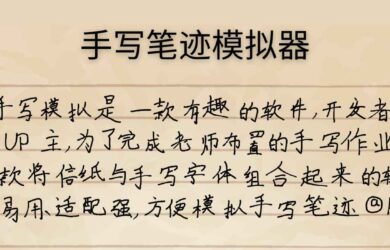 手写笔迹模拟器
手写模拟是一款有趣的软件,开发者
UP主,为了完成老师布置的手写作业
款将信纸与手写字体组合起来的
易用、适配强,方便模拟手写笔迹.@